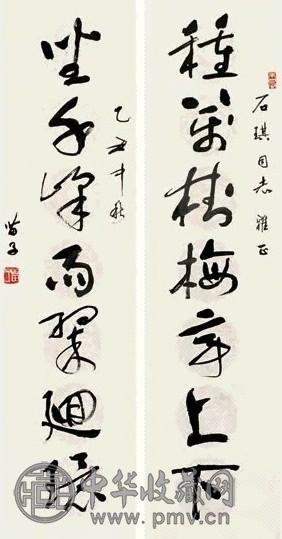 石琪同志 雅正
種萬樹梅亭上下
坐千峰雨翠迴環
乙丑中秋
苗子
中华收藏网
www.pmv.cn